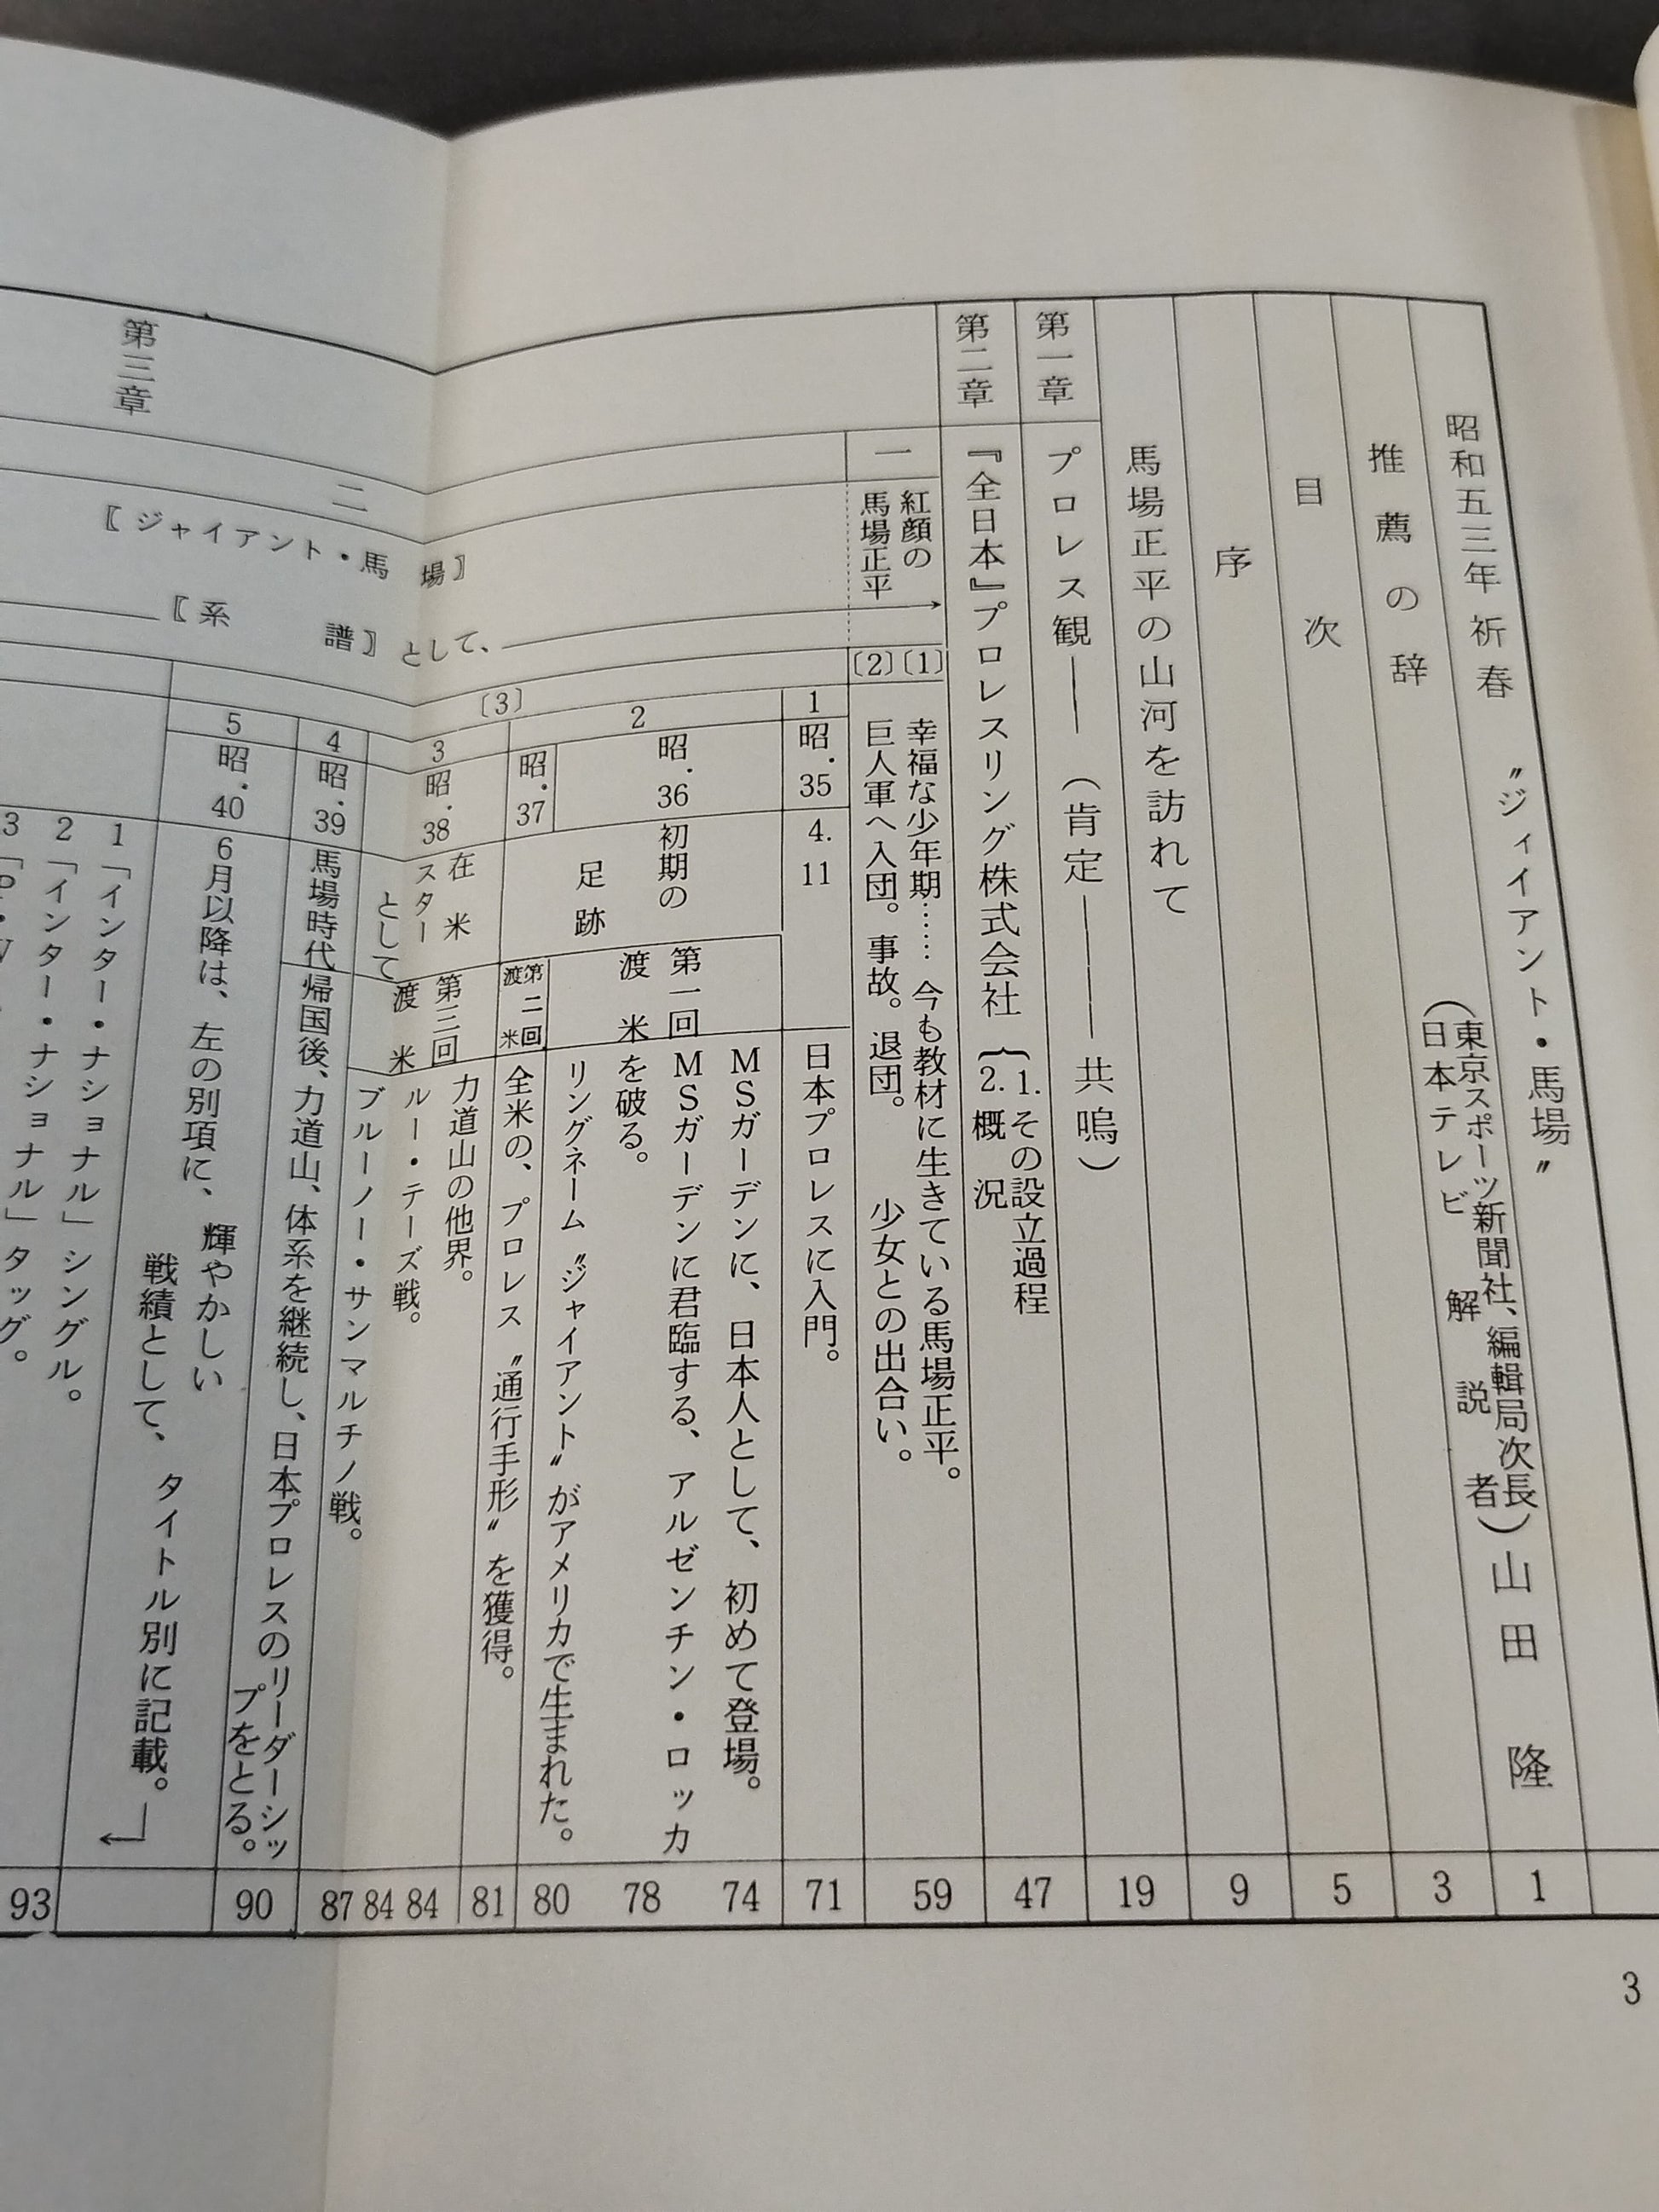 昭和五三年 祈春 〝ジィイアント・馬場〟 1
推薦の辞 (東京スポーツ新聞社、編輯局次長
日本テレビ 解説者) 山田 隆 3
目次 5
序 9
馬場正平の山河を訪れて 19
第一章 プロレス観——(肯定———共鳴) 47
第二章 『全日本』プロレスリング株式会社 {1.その設立過程
2.概況 59
第三章
一 紅顔の
馬場正平
〔1〕 幸福な少年期…… 今も教材に生きている馬場正平。
〔2〕 巨人軍へ入団。事故。退団。 少女との出合い。
二 〖ジャイアント・馬場〗
〖系譜〗として、
〔3〕
1 昭.35 4.11 日本プロレスに入門。 71
2 昭.36 初期の
足跡
第一回
渡米
MSガーデンに、日本人として、初めて登場。 74
MSガーデンに君臨する、アルゼンチン・ロッカ
を破る。 78
リングネーム〝ジャイアント〟がアメリカで生まれた。 80
昭.37 第二回
渡米
全米の、プロレス〝通行手形〟を獲得。 81
3 昭.38 在米
スター
として
第三回
渡米
力道山の他界。 84
ルー・テーズ戦。 84
ブルーノー・サンマルチノ戦。 87
4 昭.39 馬場時代 帰国後、力道山、体系を継続し、日本プロレスのリーダーシッ
プをとる。 90
5 昭.40 6月以降は、左の別項に、輝やかしい
戦績として、タイトル別に記載。
1 「インター・ナショナル」シングル。 93
2 「インター・ナショナル」タッグ。
3
3